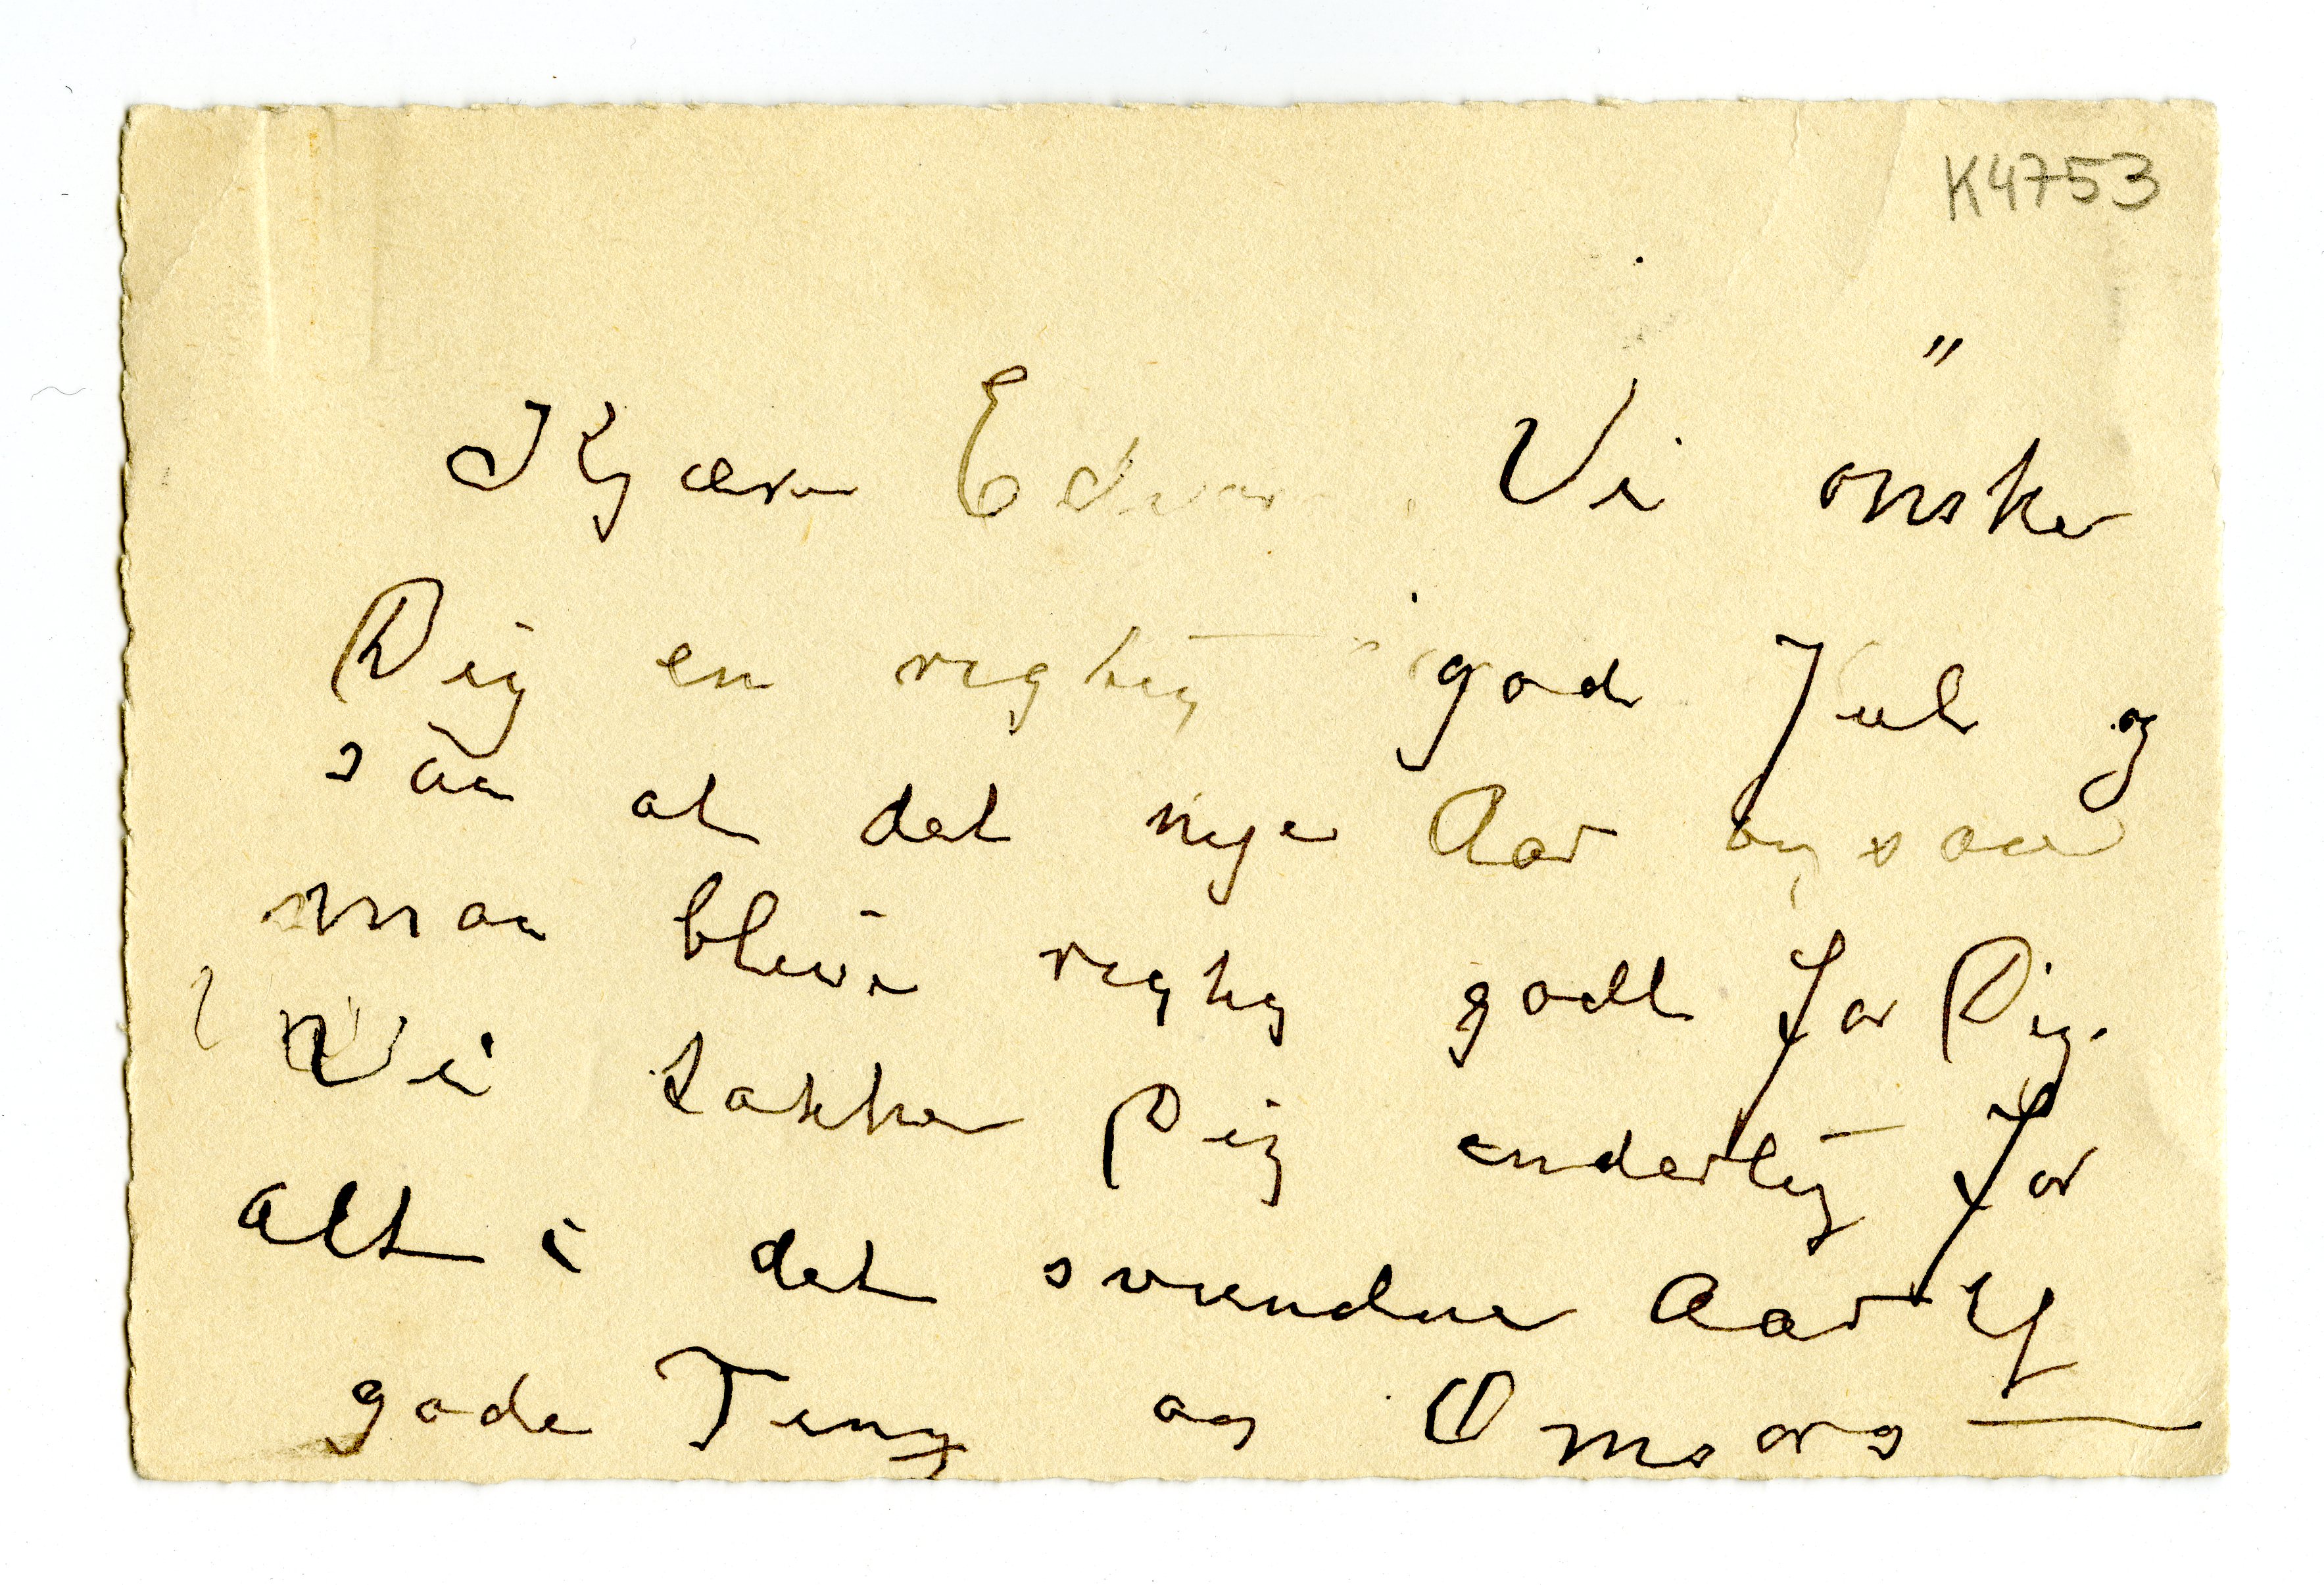 K4753
Kjære Edvard. Vi ønsker
Dig en regtig god Jul og
saa at det nye Aar ogsaa
maa blive regtig godt for Dig.
Vi takker Dig enderlig for
alt i det svundne Aar af
gode Ting og Omsorg —